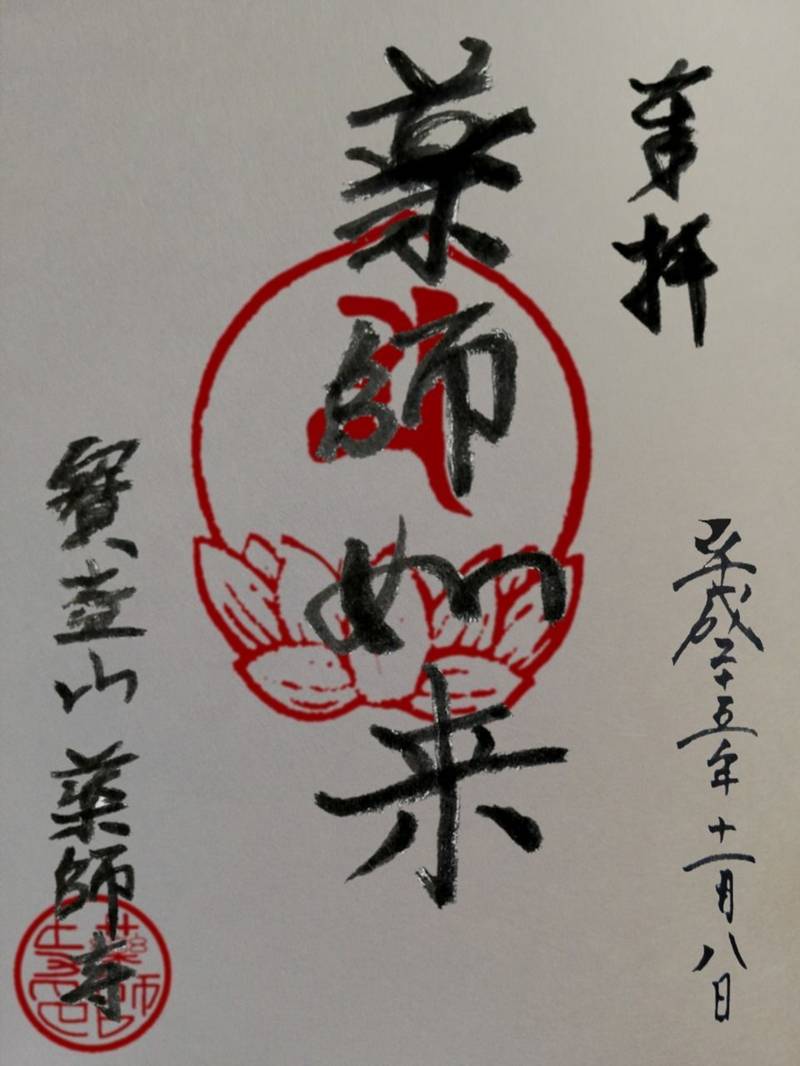 奉拝
平成二十五年十一月八日
薬師如来
寳壺山 薬師寺